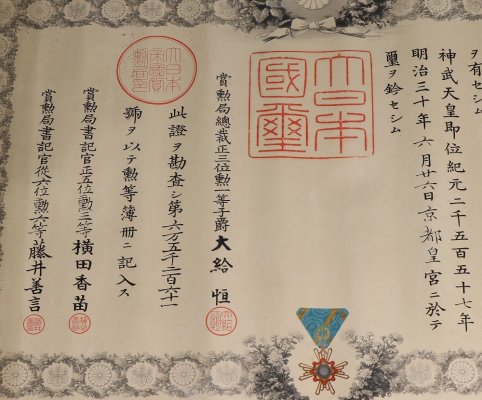 ヲ有セシム
神武天皇即位紀元二千五百五十七年
明治三十年六月廿六日京都皇宮ニ於テ
璽ヲ鈐セシム
大日本
國璽
賞勲局總裁正三位勲一等子爵大給恒
此證ヲ勘査シ第六万五千二百六十一
號ヲ以テ勲等簿冊ニ記入ス
賞勲局書記官正五位勲三等横田香苗
賞勲局書記官從六位勲六等藤井善言